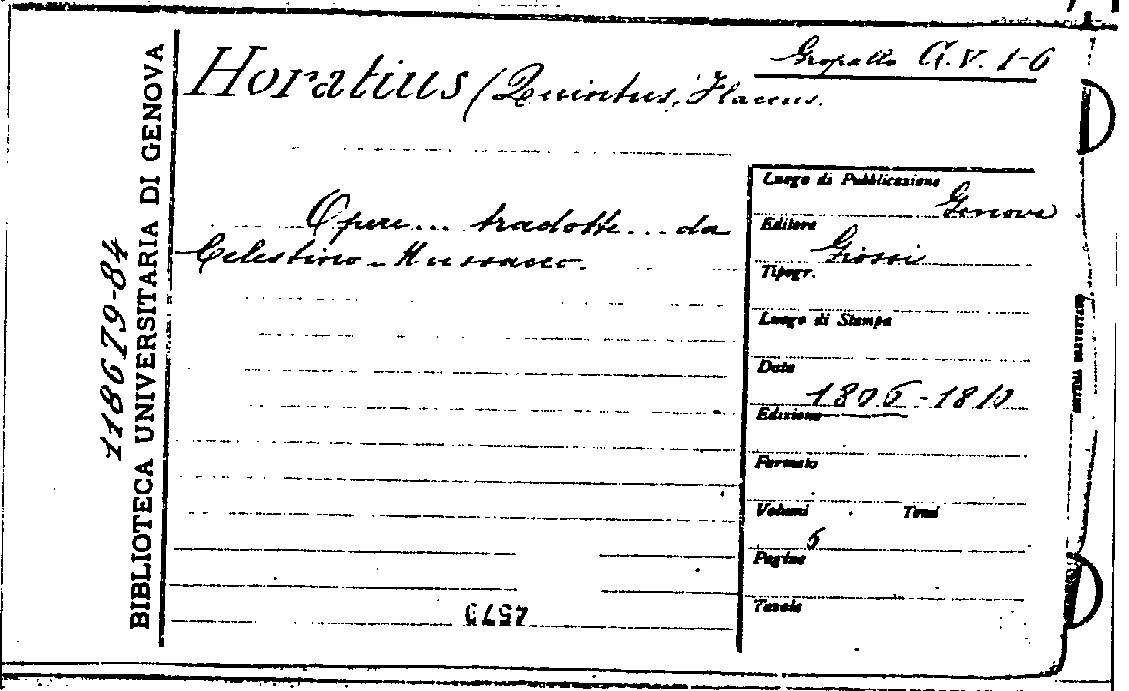 Gropallo A.V. 1-6
Horatius (Quintus, Flaccus.
Opere... tradotte... da
Celestino Massucco.
Luogo di Pubblicazione
Genova
Editore
Giossi
Tipogr.
Luogo di Stampa
Data
1806-1810
Edizione
Formato
Volumi Tomi
6
Pagine
Tavole
BIBLIOTECA UNIVERSITARIA DI GENOVA
118679-84